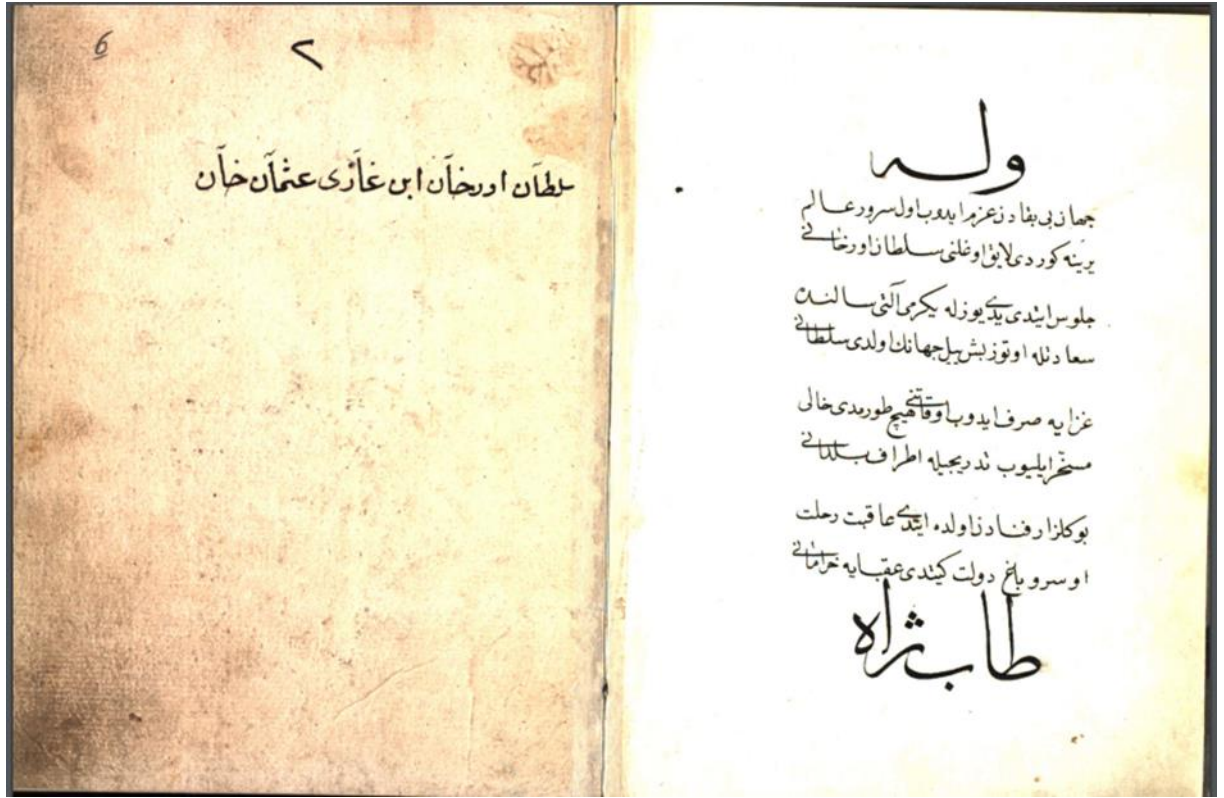 وله
جهان بی بقادن عزم ایدوب اول سرور عالم
یرینه کوردی لایق اوغلنی سلطان اورخانی
جلوس ایتدی یدی یوزله یکرمی آلتی سالنده
سعادتله اوتوز بش ییل جهانك اولدی سلطانی
غزایه صرف ایدوب اوقاتنی هیچ طورمدی خالی
مسخر ایلیوب تدریجیله اطراف بلدانی
بو کلزار فنادن اولده ایتدی عاقبت رحلت
او سرو باغ دولت کیتدی عقبایه خرامانی
طاب ثراه
6
٢
سلطان اورخان ابن غازی عثمان خان